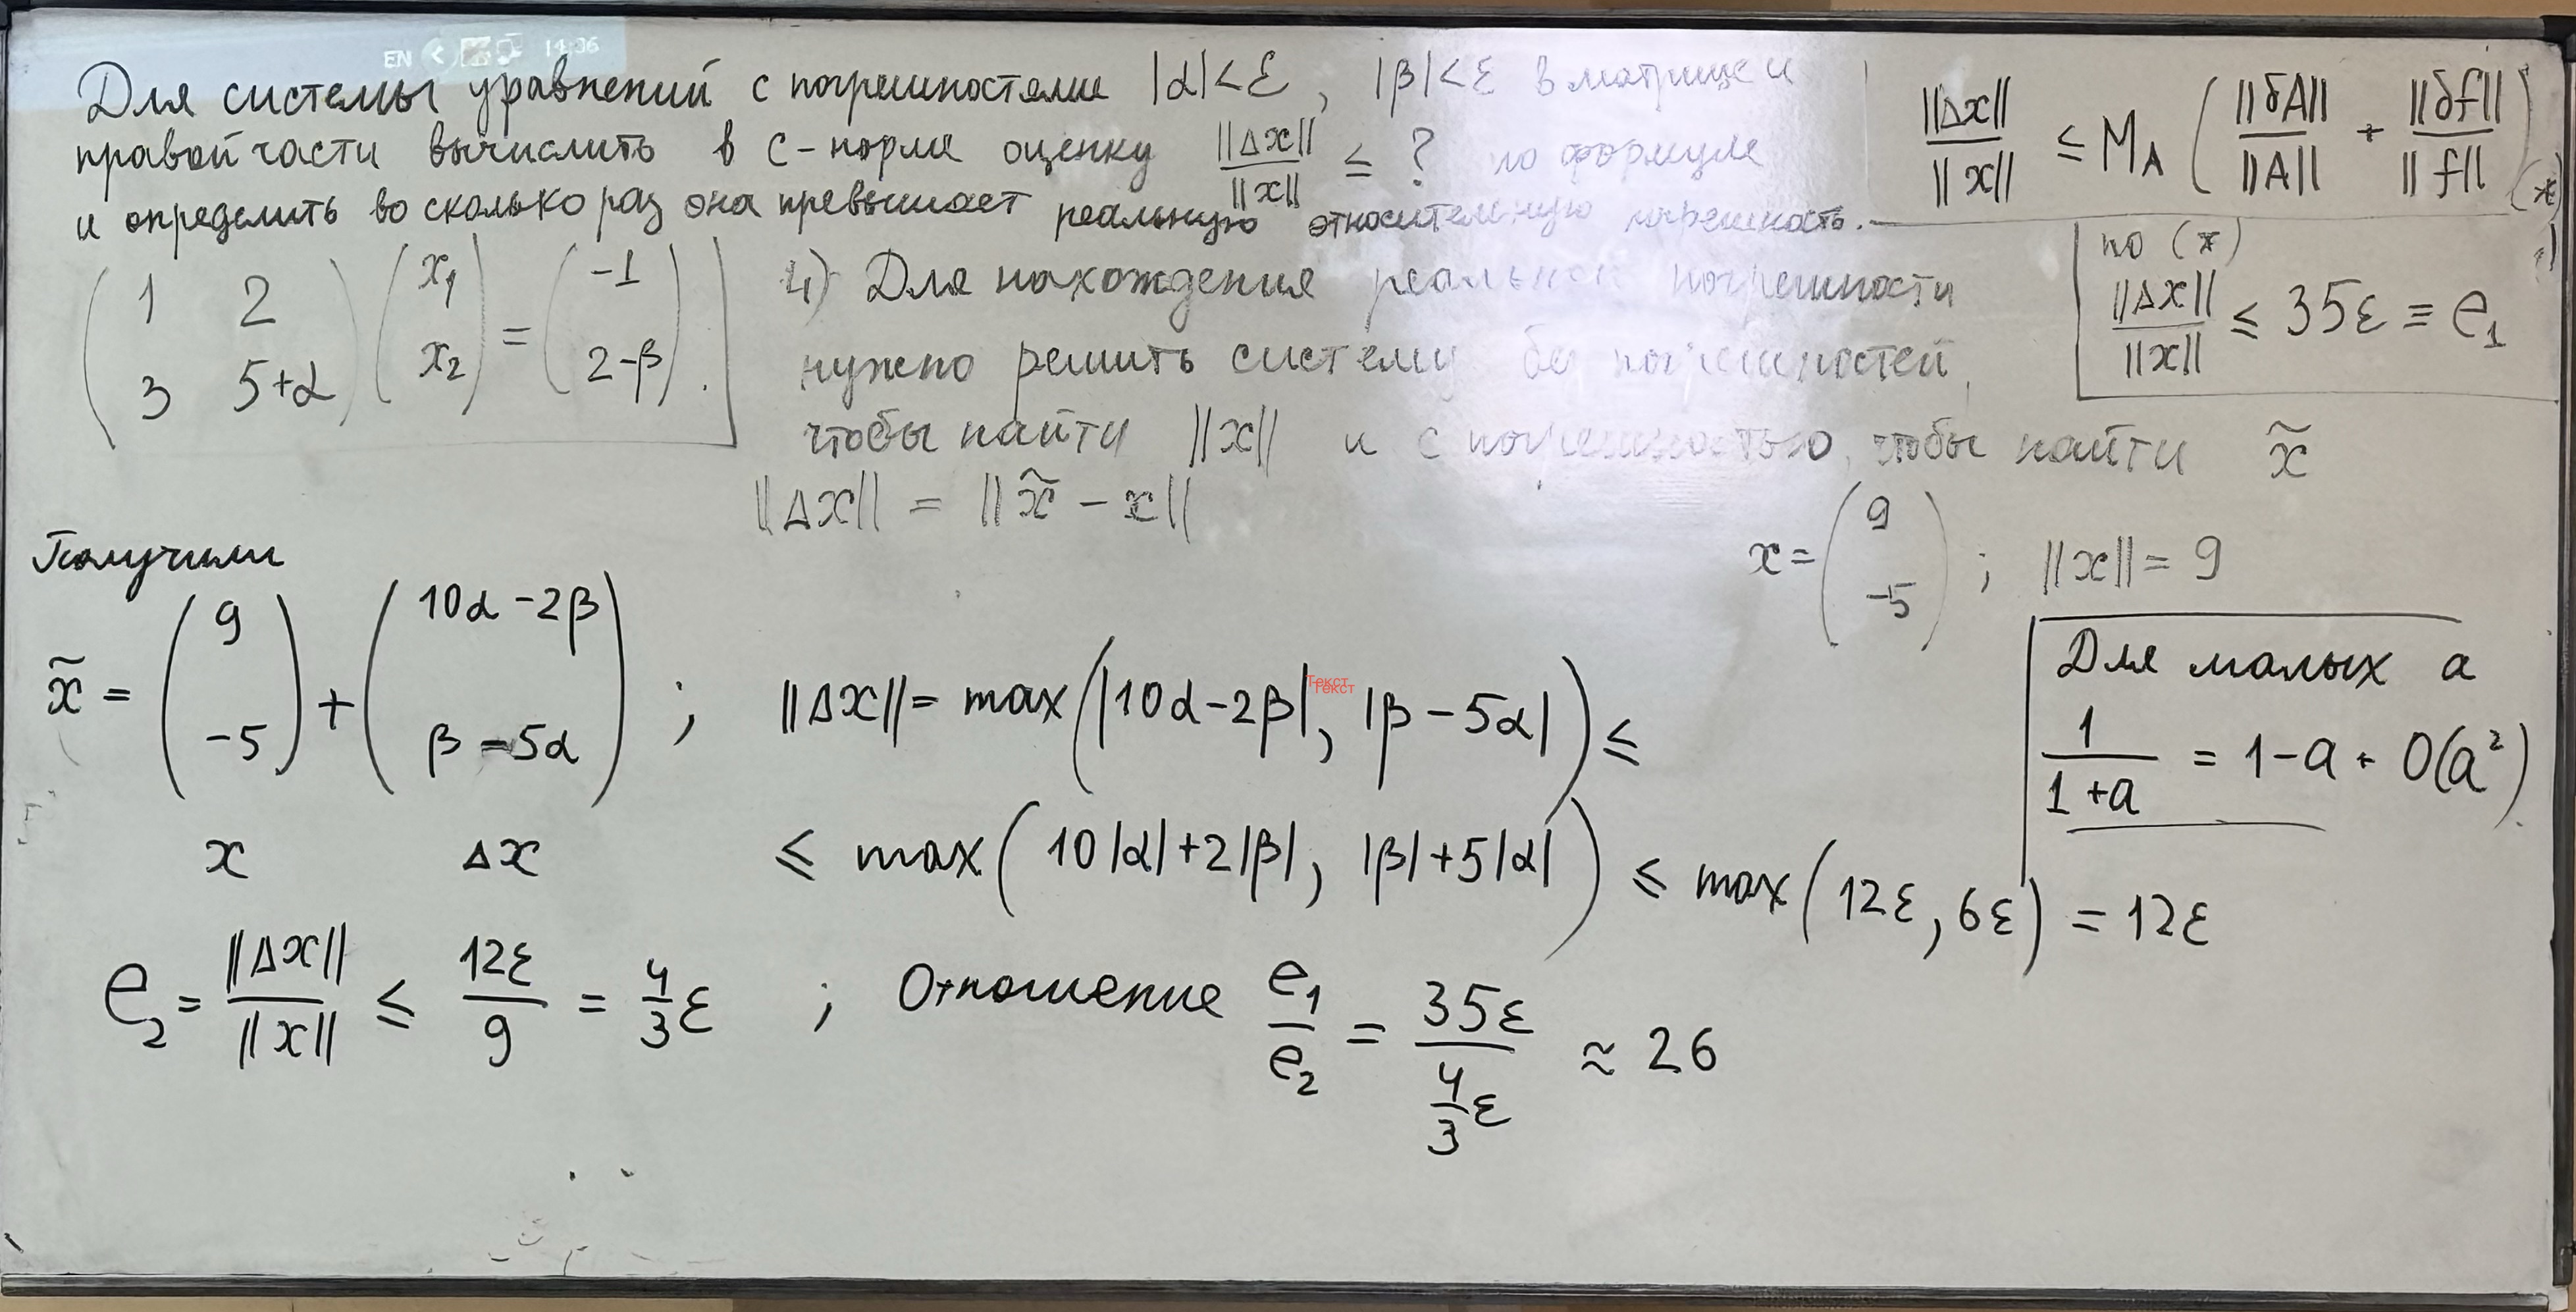 EN < 14:36
Для системы уравнений с погрешностями |α|<ε, |β|<ε в матрице и
правой части вычислить в C-норме оценку ||Δx||/||x|| ≤ ? по формуле
и определить во сколько раз она превышает реальную относительную погрешность.
||Δx||/||x|| ≤ M_A (||δA||/||A|| + ||δf||/||f||) (*)
(1 2; 3 5+α) (x₁; x₂) = (-1; 2-β).
по (*)
||Δx||/||x|| ≤ 35ε ≡ e₁
4) Для нахождения реальной погрешности
нужно решить систему без погрешностей,
чтобы найти ||x|| и с погрешностью, чтобы найти x̃
||Δx|| = ||x̃ - x||
x = (9; -5) ; ||x|| = 9
Получили
x̃ = (9; -5) + (10α - 2β; β - 5α) ; ||Δx|| = max(|10α - 2β|, |β - 5α|) ≤
Текст
Текст
x Δx
Для малых a
1/(1+a) = 1 - a + O(a²)
≤ max(10|α| + 2|β|, |β| + 5|α|) ≤ max(12ε, 6ε) = 12ε
e₂ = ||Δx||/||x|| ≤ 12ε/9 = 4/3 ε ; Отношение e₁/e₂ = 35ε/(4/3 ε) ≈ 26